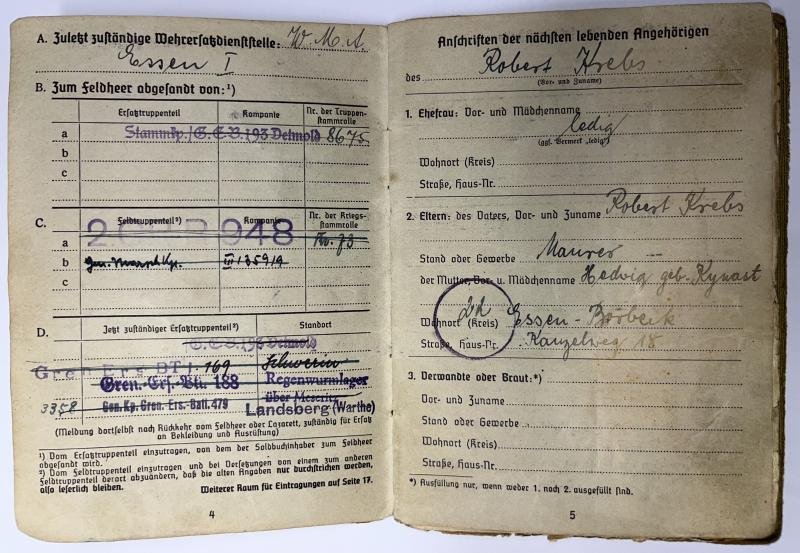 A. Zuletzt zuständige Wehrersatzdienststelle: W. M. A.
Essen I
B. Zum Feldheer abgesandt von:¹)
Ersatztruppenteil Kompanie Nr. der Truppen-
stammrolle
a Stammkp./G.E.B. 193 Detmold 8675
b
c
C. Feldtruppenteil²) Kompanie Nr. der Kriegs-
stammrolle
948
a No. 73
b Gen. Marsch Kp.
c
D. Jetzt zuständiger Ersatztruppenteil²) Standort
G.E.B. 193 Detmold
Gren Ers BTl. 169 Schwerin
Gren.-Ers.-Btl. 188 Regenwurmlager
über Meseritz
3358 Gen. Kp. Gren.-Ers.-Batl. 479 Landsberg (Warthe)
(Meldung dortselbst nach Rückkehr vom Feldheer oder Lazarett, zuständig für Ersatz
an Bekleidung und Ausrüstung)
¹) Vom Ersatztruppenteil einzutragen, von dem der Soldbuchinhaber zum Feldheer
abgesandt wird.
²) Vom Feldtruppenteil einzutragen und bei Versetzungen von einem zum anderen
Feldtruppenteil derart abzuändern, daß die alten Angaben nur durchstrichen werden,
also leserlich bleiben. Weiterer Raum für Eintragungen auf Seite 17.
4
Anschriften der nächsten lebenden Angehörigen
des Robert Krebs
(Vor- und Zuname)
1. Ehefrau: Vor- und Mädchenname
ledig
(ggf. Vermerk „ledig")
Wohnort (Kreis)
Straße, Haus-Nr.
2. Eltern: des Vaters, Vor- und Zuname Robert Krebs
Stand oder Gewerbe Maurer
der Mutter, Vor- u. Mädchenname Hedwig geb. Kynast
Wohnort (Kreis) Essen-Borbeck
Straße, Haus-Nr. Kanzelweg 18
3. Verwandte oder Braut:*)
Vor- und Zuname
Stand oder Gewerbe
Wohnort (Kreis)
Straße, Haus-Nr.
*) Ausfüllung nur, wenn weder 1. noch 2. ausgefüllt sind.
5